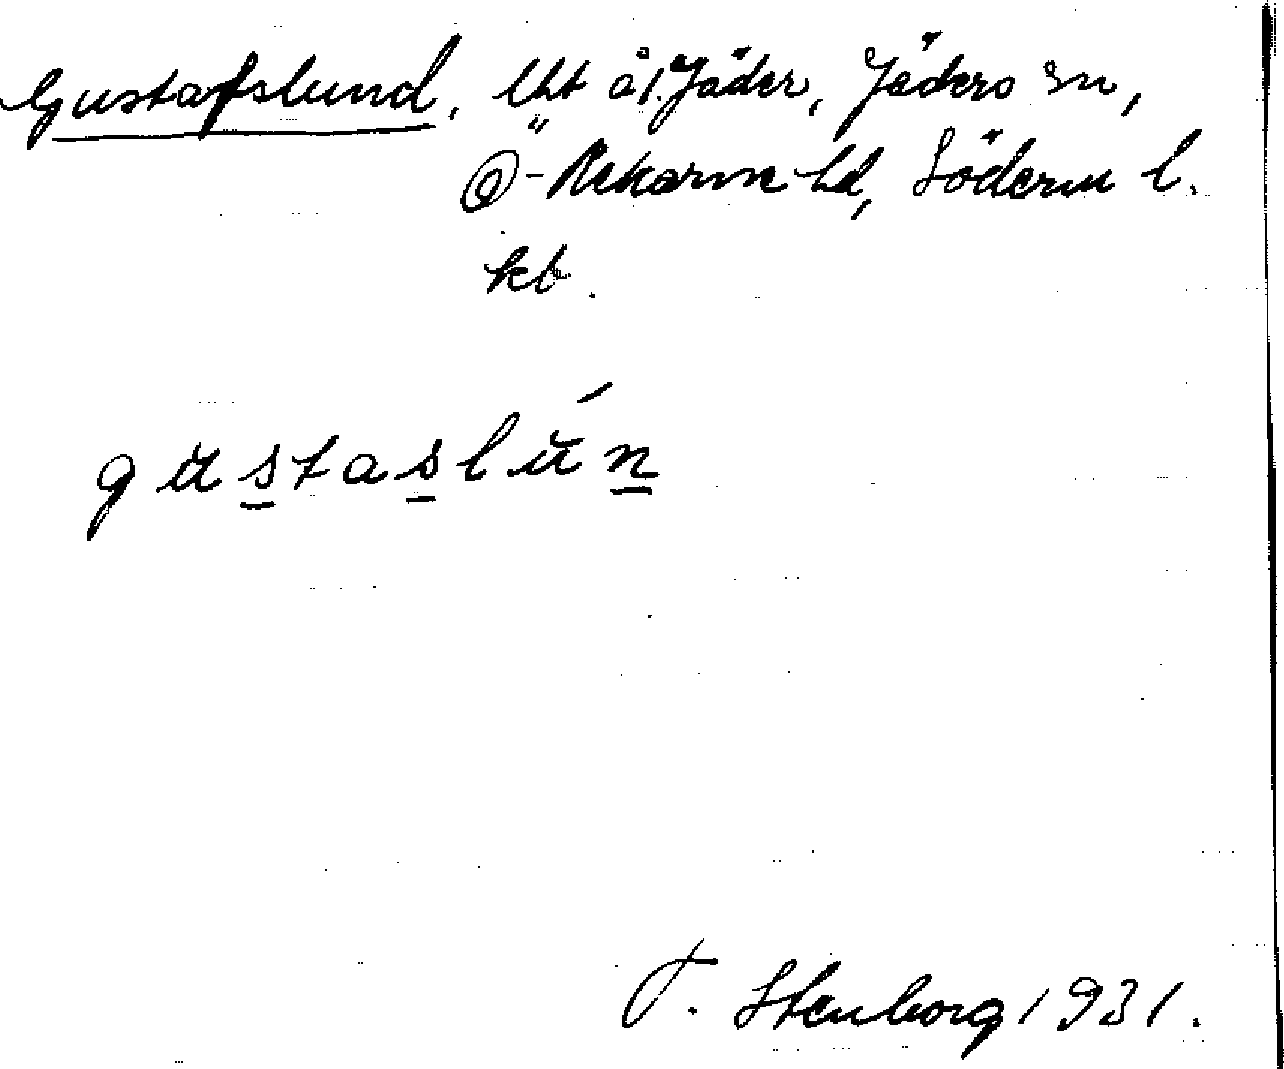 Gustafslund, lht å l. Jäder, Jäders sn,
Ö-Rekarne hd, Söderm l.
kb.
gustaslún
T. Stenborg 1931.